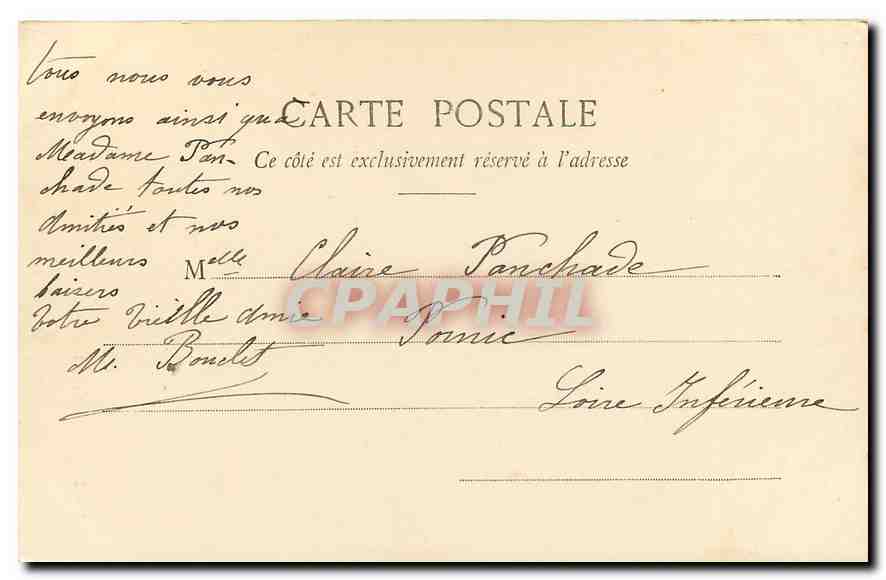 tous nous vous
envoyons ainsi qu'à
Madame Pan-
chade toutes nos
amitiés et nos
meilleurs
baisers
Votre vieille amie
M. Bouclet
CARTE POSTALE
Ce côté est exclusivement réservé à l'adresse
Melle Claire Panchade
Pornic
Loire Inférieure
CPAPHIL